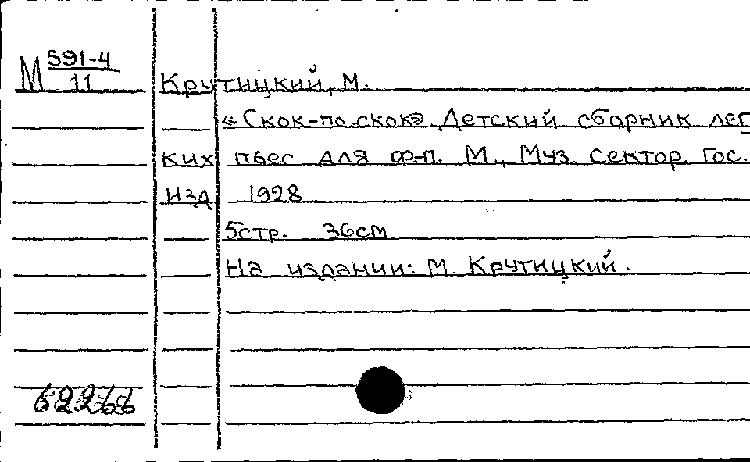 М 591-4
11
Крутицкий, М.
«Скок-по скок». Детский сборник лег
ких пьес для ф-п. М., Муз. Сектор. Гос.
изд 1928
5стр. 36см
На издании: М. Крутицкий.